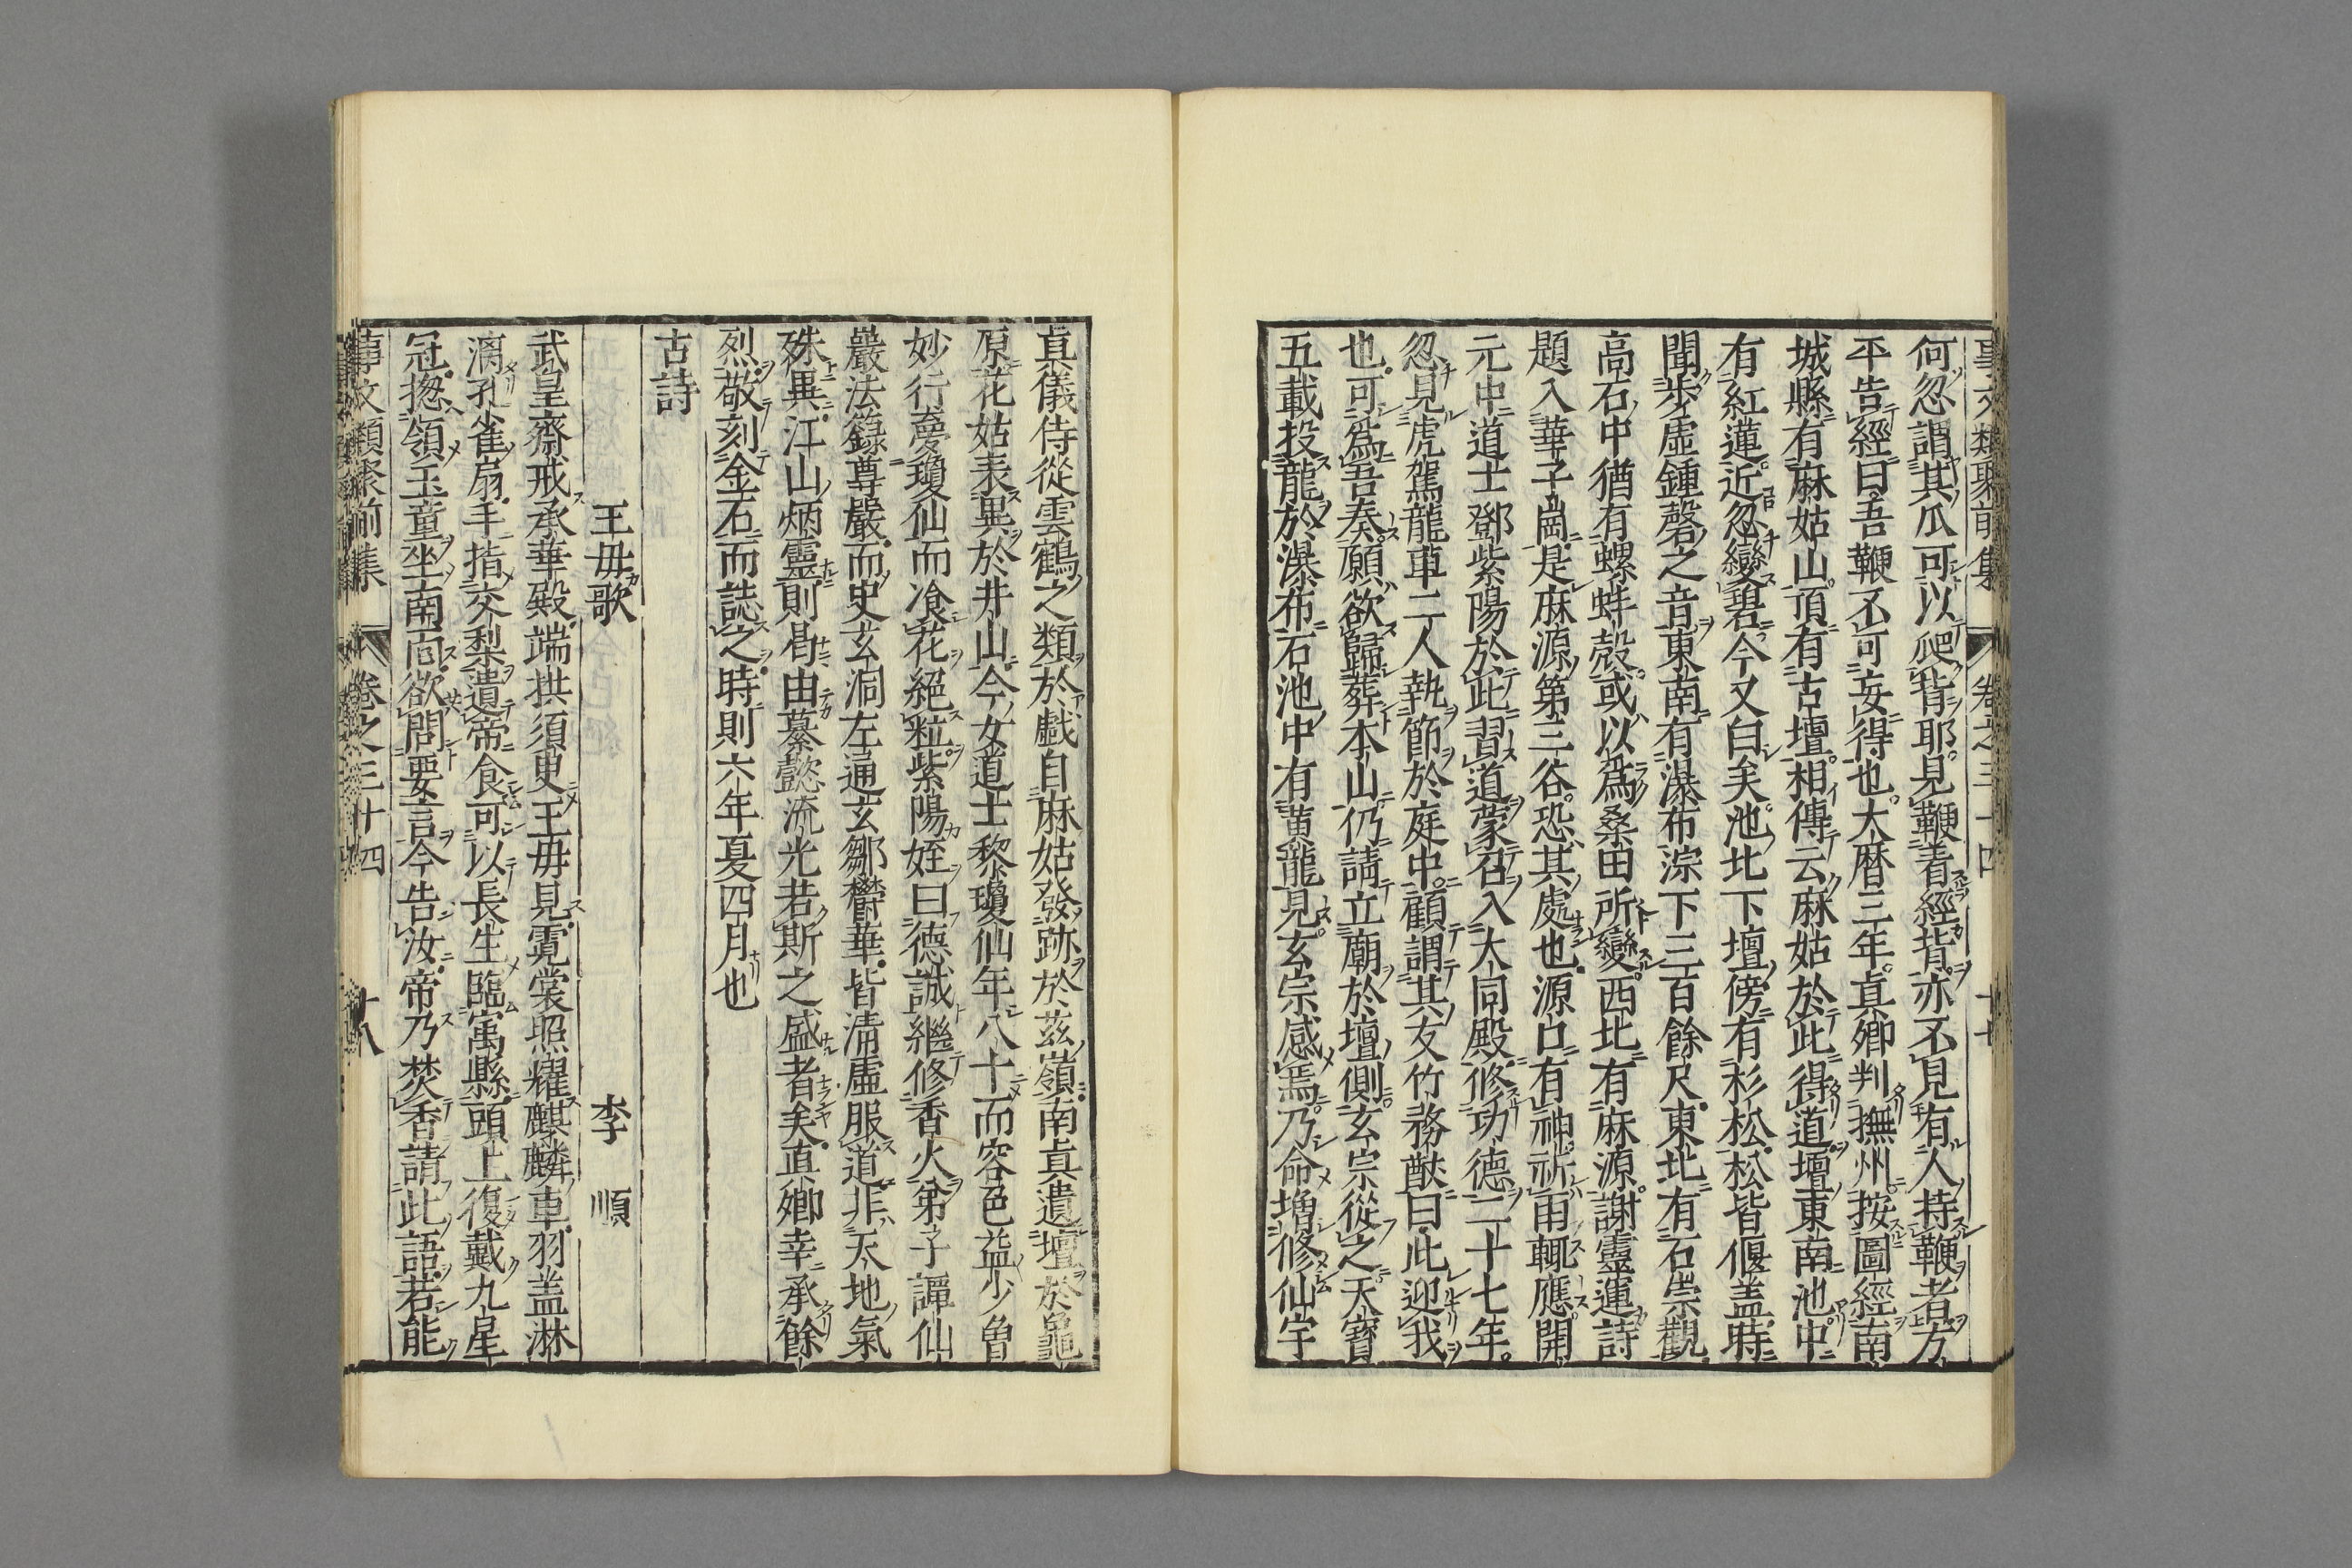 事文類聚前集 卷之三十四 十七
何忽謂其爪可以爬背耶見鞭着經背亦不見有人持鞭者方
平告經曰吾鞭不可妄得也大暦三年真卿判撫州按圖經南
城縣有麻姑山頂有古壇相傳云麻姑於此得道壇東南池中
有紅蓮近忽變碧今又白矣池北下壇傍有杉松松皆偃盖時
聞步虛鍾磬之音東南有瀑布淙下三百餘尺東北有石崇觀
高石中猶有螺蚌殻或以爲桑田所變西北有麻源謝靈運詩
題入華子崗是麻源第三谷恐其處也源口有神祈雨輙應開
元中道士鄧紫陽於此習道蒙召入大同殿修功德二十七年
忽見虎駕龍車二人執節於庭中顧謂其友竹務猷曰此迎我
也可爲吾奏願欲歸葬本山仍請立廟於壇側玄宗從之天寳
五載投龍於瀑布石池中有黄龍見玄宗感焉乃命增修仙宇
真儀侍從雲鶴之類於戯自麻姑發跡於茲嶺南真遺壇於龜
原花姑表異於井山今女道士黎瓊仙年八十而容色益少曽
妙行夢瓊仙而飡花絕粒紫陽姪曰德誠繼修香火弟子譚仙
嚴法籙尊嚴而史玄洞左通玄鄒欝華皆清虛服道非天地氣
殊異江山炳靈則曷由纂懿流光若斯之盛者矣真卿幸承餘
烈敬刻金石而誌之時則六年夏四月也
古詩
王毋歌 李 順
武皇齋戒承華殿端拱須臾王毋見霓裳照耀麒麟車羽盖淋
漓孔雀扇手指交梨遣帝食可以長生臨寓縣頭上復戴九星
冠揔領玉童坐南面欲問要言今告汝帝乃焚香請此語若能
事文類聚前集 卷之三十四 十八